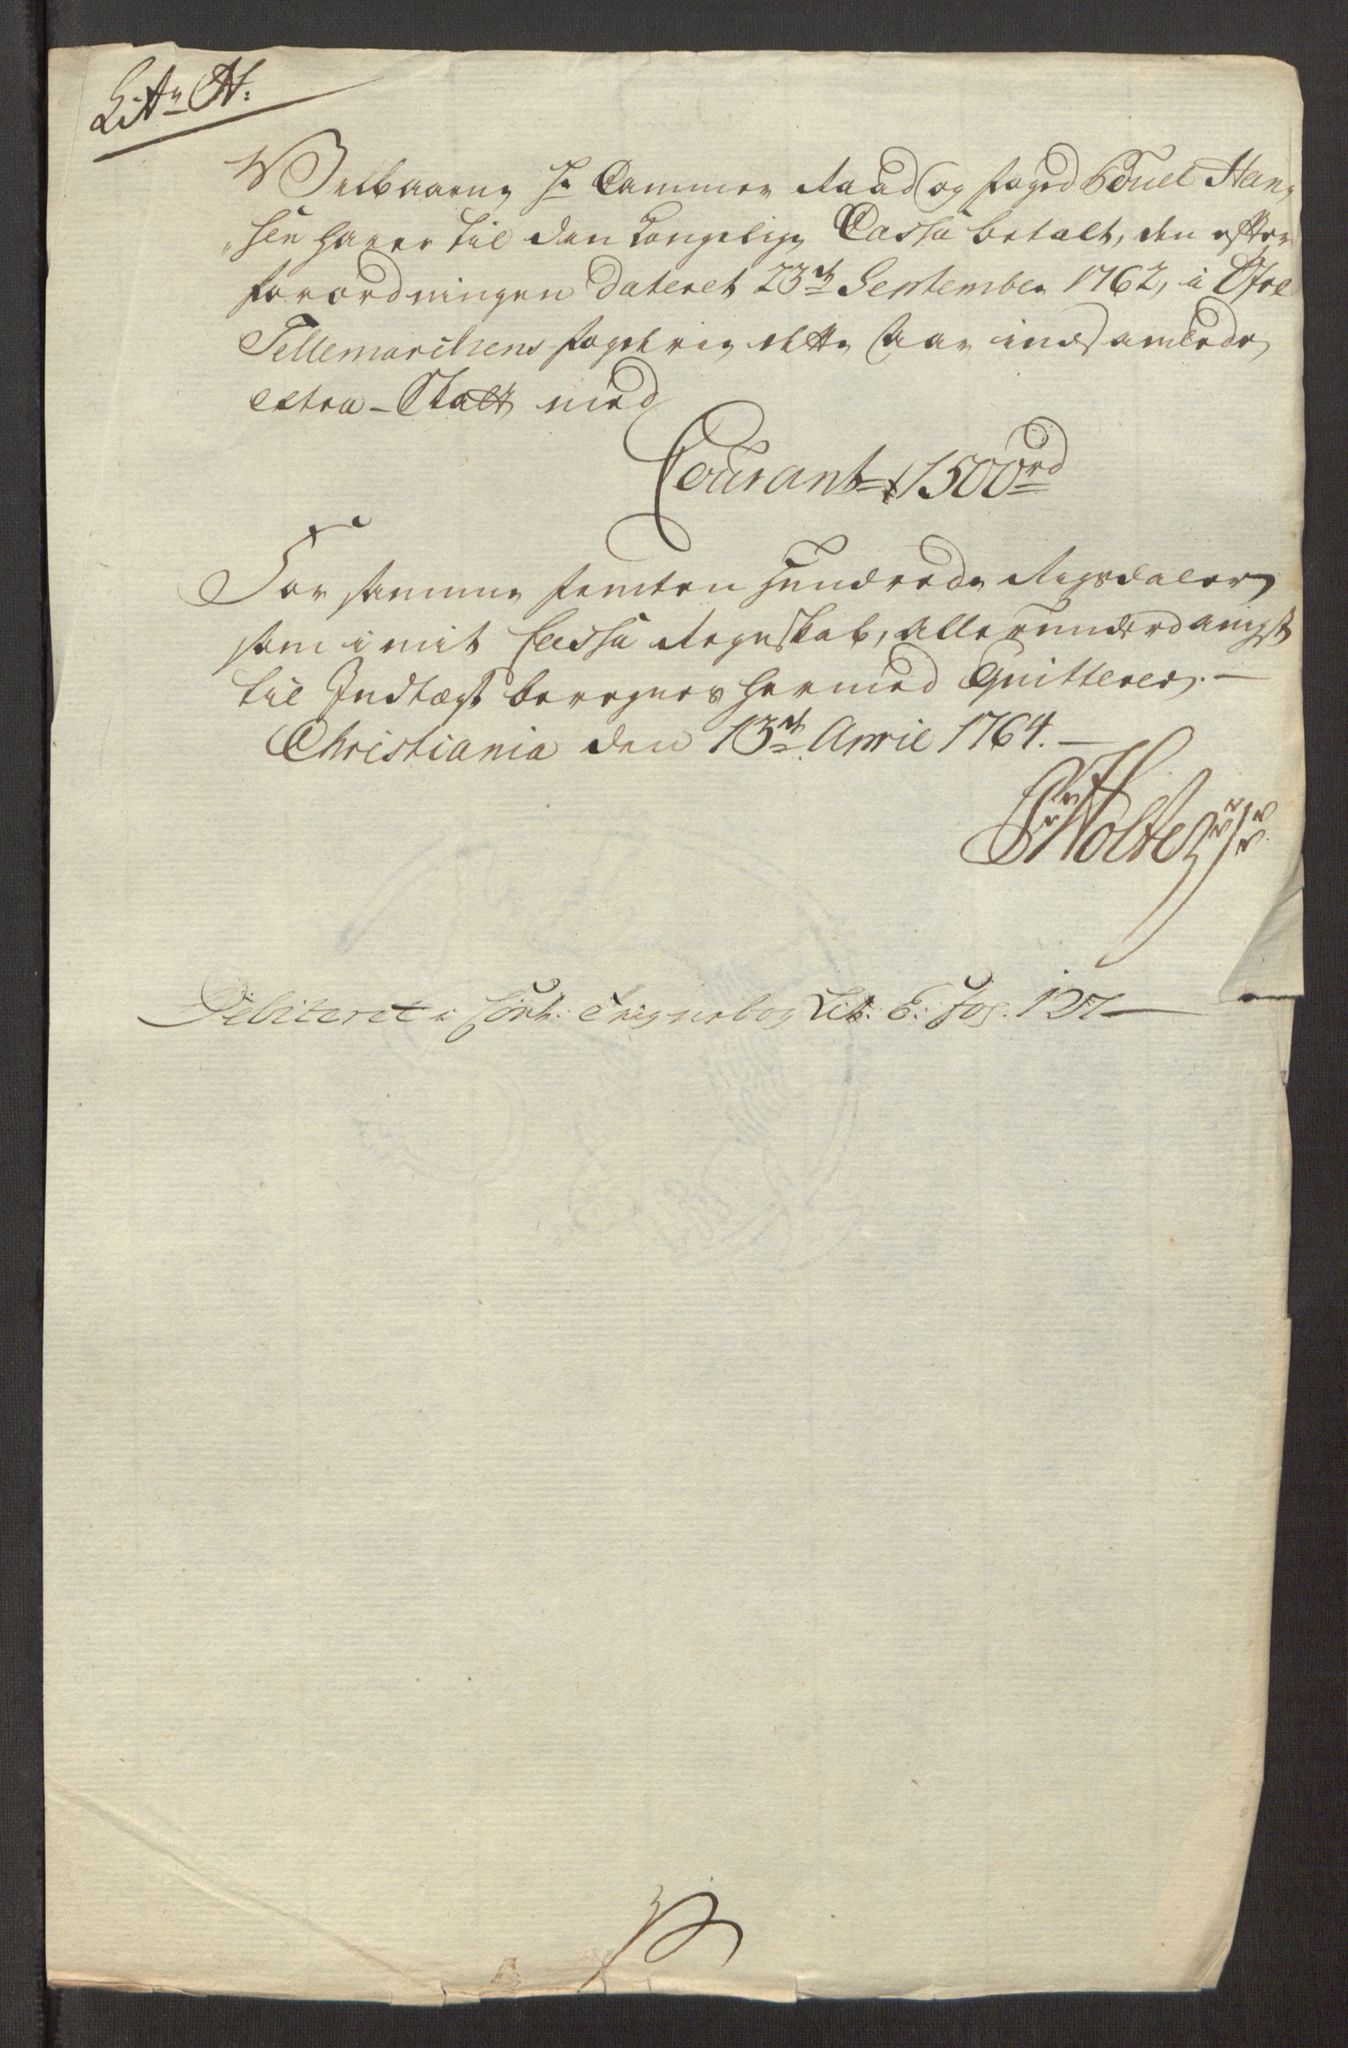 Litr A:
Velbaarne Hr Cammer Raad og foged Powel Han,
„sen haver til den Kongelige Cassa betalt, den efter
forordningen dateret 23de September 1762, i Øfre
Tellemarchens fogderie dette Aar indsamlede
extra-Skatt med
Courant 1500rd
For samme femten Hundrede Rigsdaler,
som i mit Cassa Regnskab, allerunderdanigst
til Indtægt beregnes hermed Quitteres.—
Christiania den 13de April 1764.—
Holter
Debiteret i Contr: Teignebog Lit: E: fog. 127—